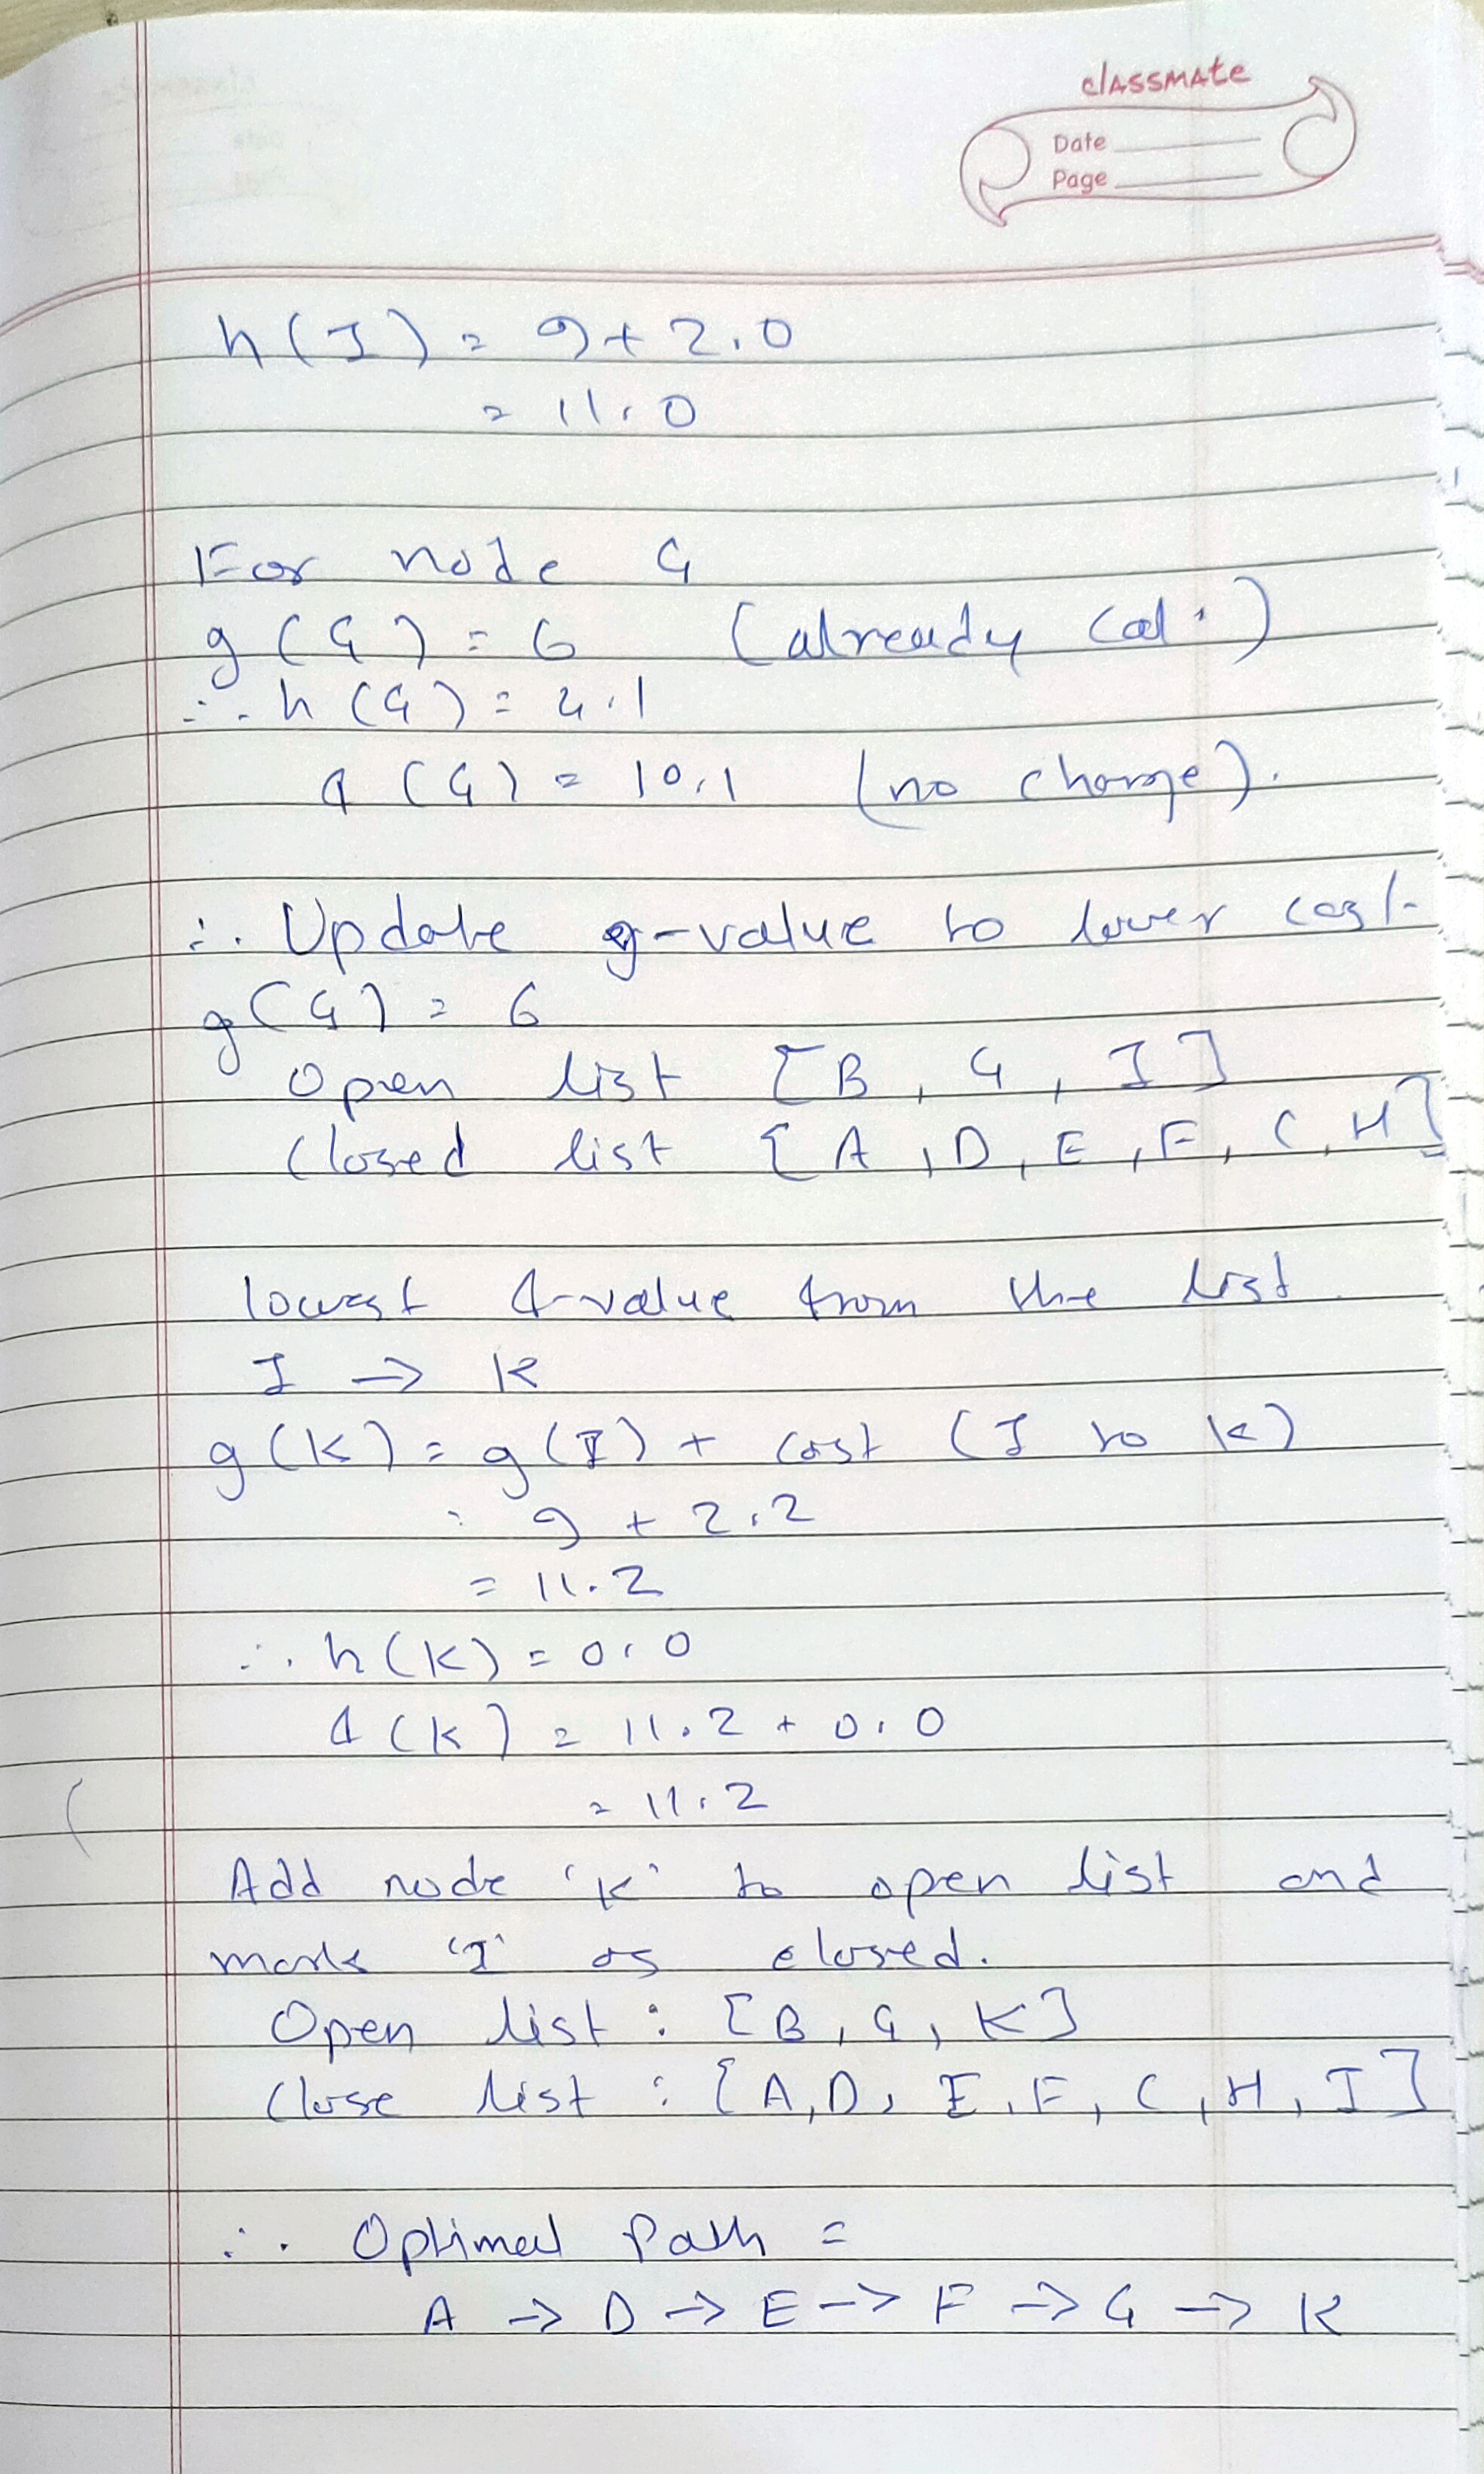 classmate
Date
Page
h(I) = 9+ 2.0
= 11.0
For node G
g(G) = 6 (already cal.)
∴ h(G) = 4.1
f(G) = 10.1 (no change).
∴ Update g-value to lower cost
g(G) = 6
Open list [B, G, I]
Closed list [A, D, E, F, C, H]
lowest f-value from the list
I → K
g(K) = g(I) + cost (I to K)
= 9 + 2.2
= 11.2
∴ h(K) = 0.0
f(K) = 11.2 + 0.0
= 11.2
Add node 'K' to open list and
mark 'I' as closed.
Open list : [B, G, K]
Close list : [A, D, E, F, C, H, I]
∴ Optimal Path =
A → D → E → F → G → K